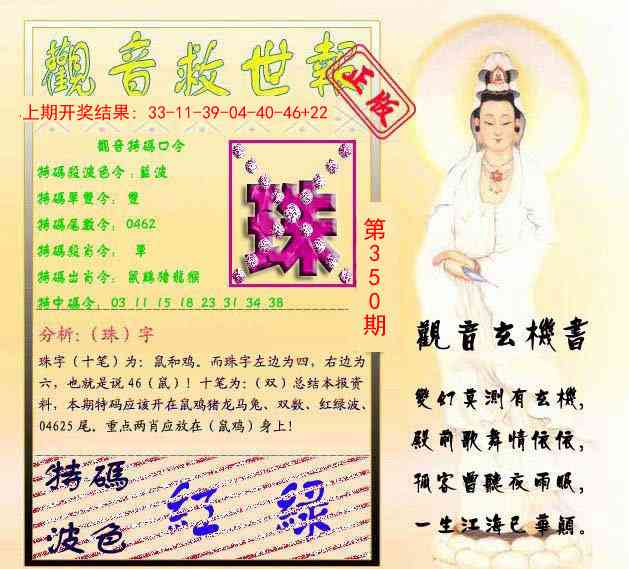 觀音救世報
正版
上期开奖结果：33-11-39-04-40-46+22
觀音特碼口令
特碼段波色令：藍波
特碼單雙令： 雙
特碼尾數令： 0462
特碼段肖令： 單
特碼出肖令： 鼠鷄猪龍猴
特中碼令： 03 11 15 18 23 31 34 38
珠
第350期
分析：（珠）字
珠字（十笔）为：鼠和鸡。而珠字左边为四，右边为
六，也就是说 46（鼠）！十笔为：（双）总结本报资
料，本期特码应该开在鼠鸡猪龙马兔、双数、红绿波、
04625 尾。重点两肖应放在（鼠鸡）身上！
特碼
波色
紅 綠
觀音玄機書
變幻莫測有玄機，
殿前歌舞情依依，
孤客曾聽夜雨眠，
一生江海已華顛。